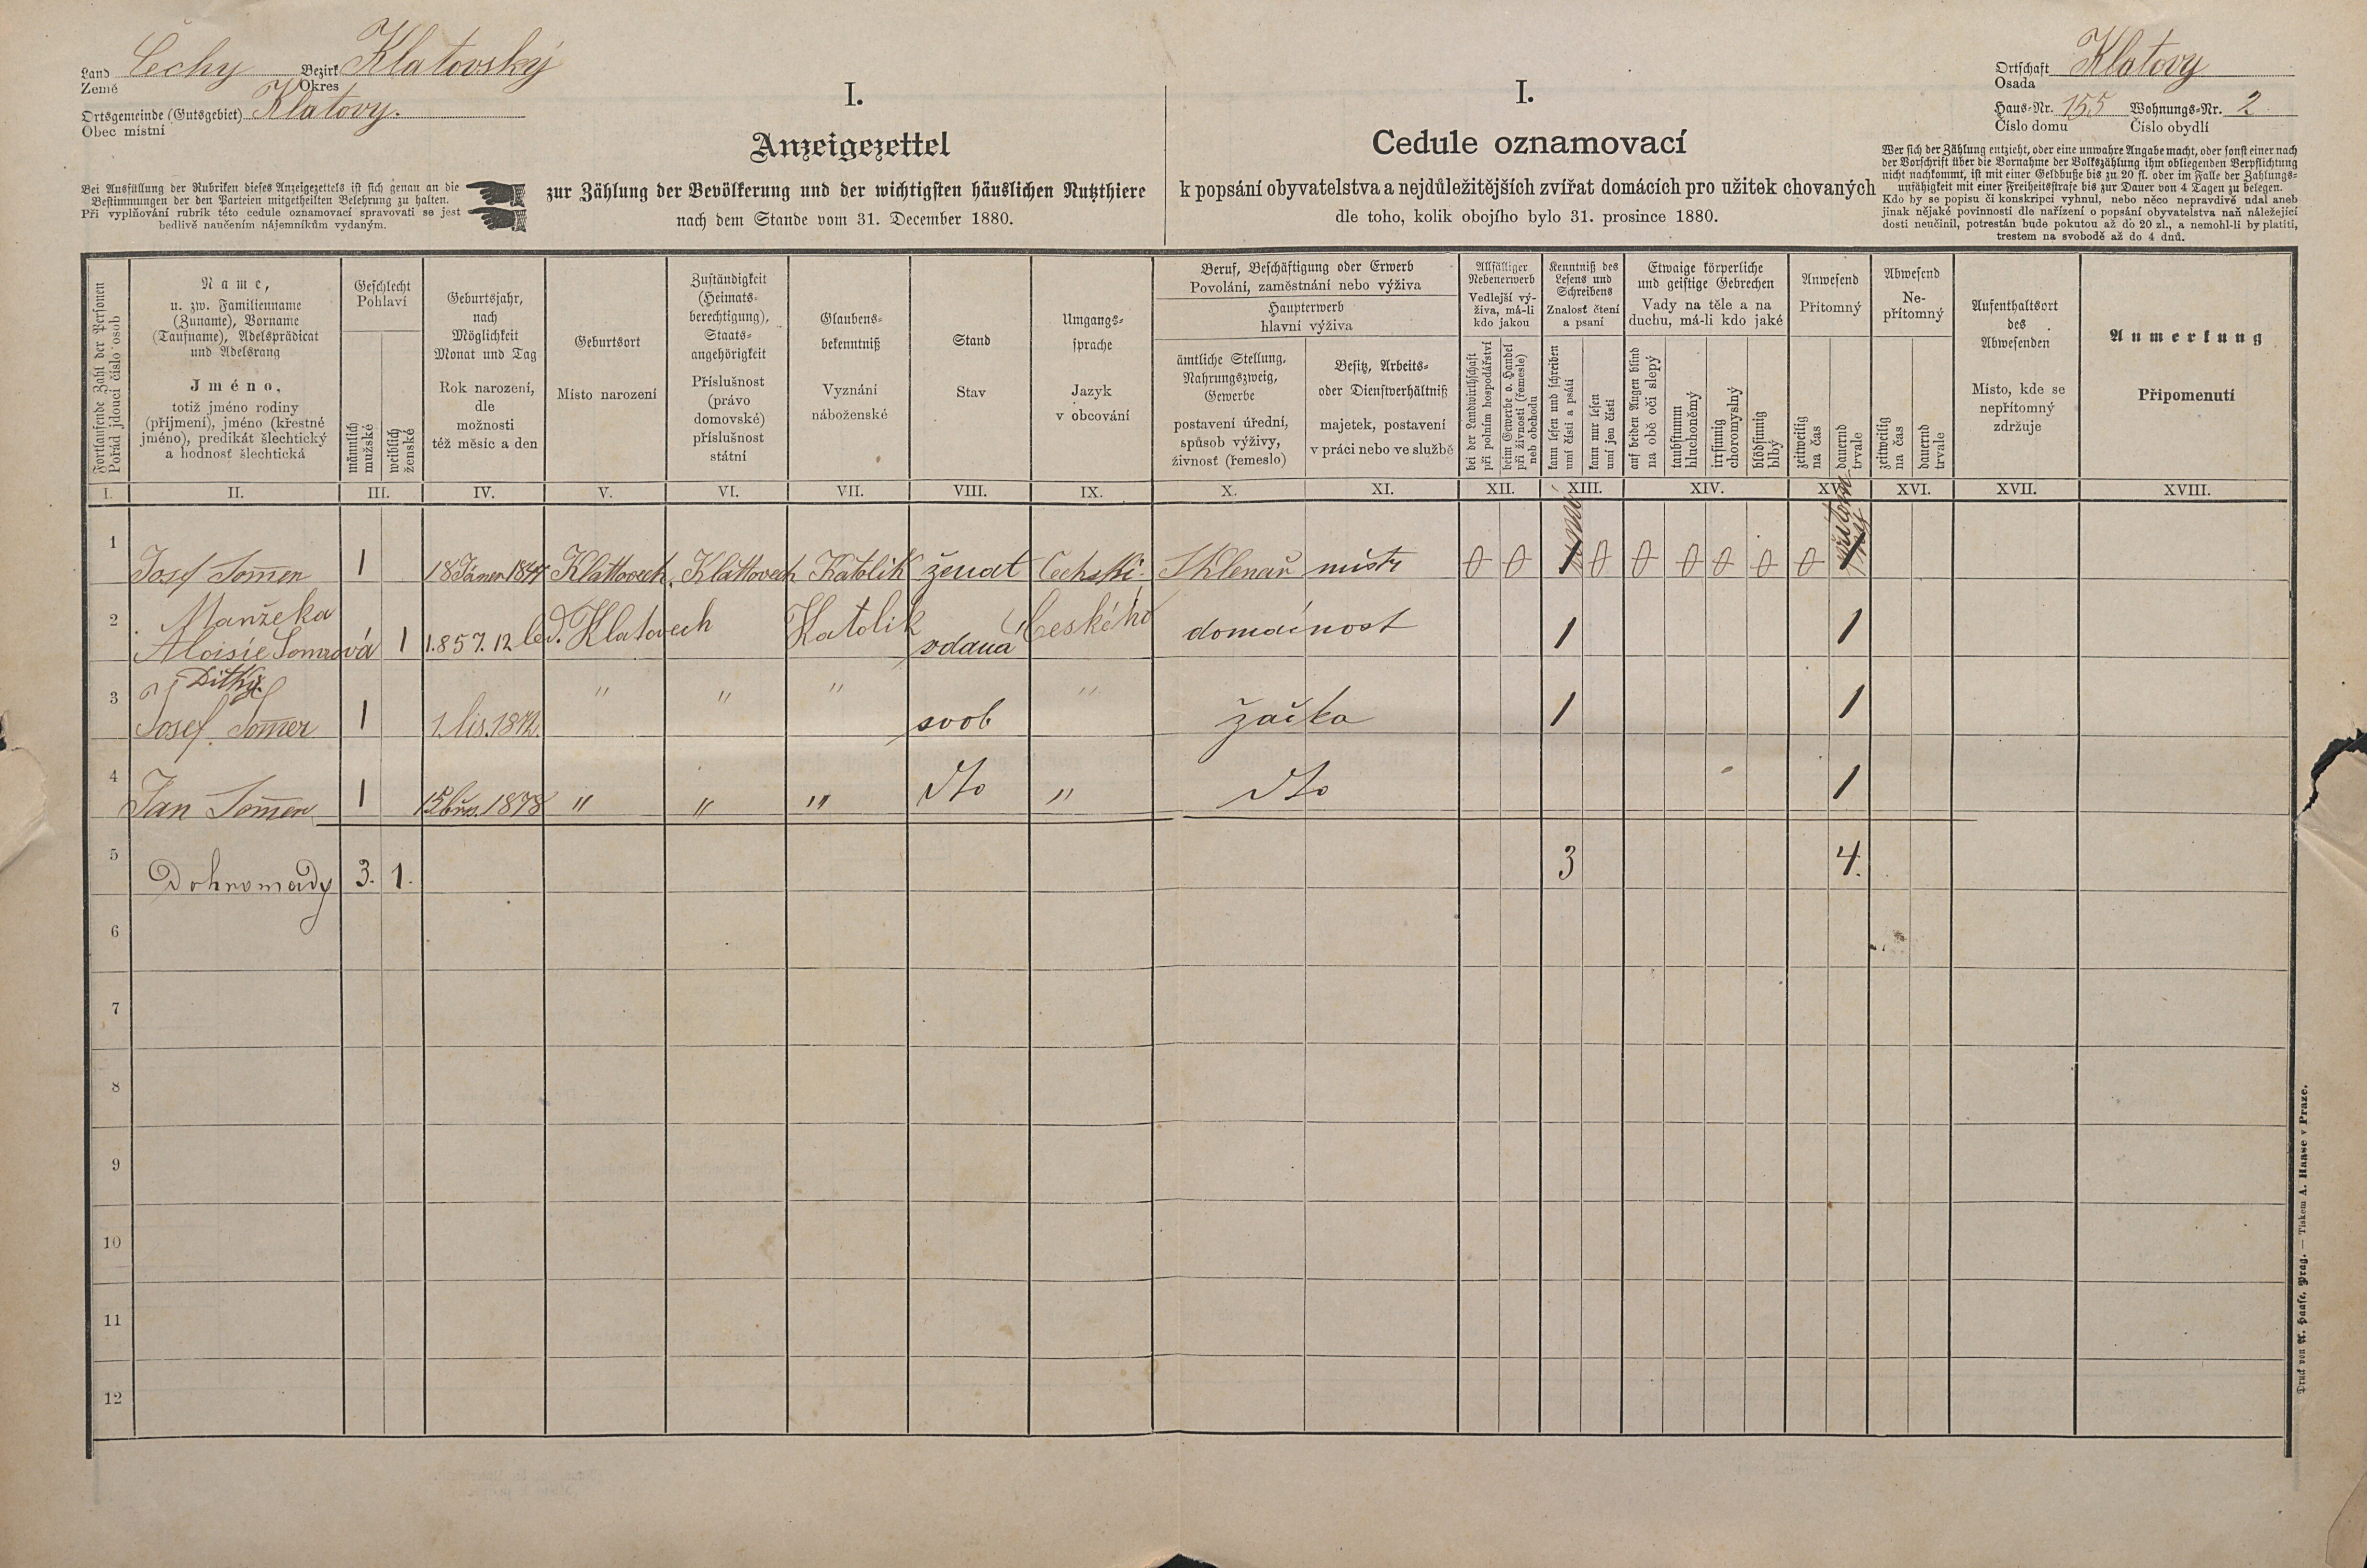 Land Čechy Bezirk Klatovský
Země Okres
Ortsgemeinde (Gutsgebiet) Klatovy.
Obec místní
Bei Ausfüllung der Rubriken dieses Anzeigezettels ist sich genau an die
Bestimmungen der den Parteien mitgetheilten Belehrung zu halten.
Při vyplňování rubrik této cedule oznamovací spravovati se jest
bedlivě naučením nájemníkům vydaným.
I.
Anzeigezettel
zur Zählung der Bevölkerung und der wichtigsten häuslichen Nutzthiere
nach dem Stande vom 31. December 1880.
I.
Cedule oznamovací
k popsání obyvatelstva a nejdůležitějších zvířat domácích pro užitek chovaných
dle toho, kolik obojího bylo 31. prosince 1880.
Ortschaft Klatovy
Osada
Haus-Nr. 155 Wohnungs-Nr. 2
Číslo domu Číslo obydlí
Wer sich der Zählung entzieht, oder eine unwahre Angabe macht, oder sonst einer nach
der Vorschrift über die Vornahme der Volkszählung ihm obliegenden Verpflichtung
nicht nachkommt, ist mit einer Geldbuße bis zu 20 fl. oder im Falle der Zahlungs-
unfähigkeit mit einer Freiheitsstrafe bis zur Dauer von 4 Tagen zu belegen.
Kdo by se popisu či konskripci vyhnul, nebo něco nepravdivě udal aneb
jinak nějaké povinnosti dle nařízení o popsání obyvatelstva naň náležející
dosti neučinil, potrestán bude pokutou až do 20 zl., a nemohl-li by platiti,
trestem na svobodě až do 4 dnů.
Fortlaufende Zahl der Personen
Pořád jdoucí číslo osob
Name,
u. zw. Familienname
(Zuname), Vorname
(Taufname), Adelsprädicat
und Adelsrang
Jméno,
totiž jméno rodiny
(příjmení), jméno (křestné
jméno), predikát šlechtický
a hodnost šlechtická
Geschlecht
Pohlaví
männlich
mužské
weiblich
ženské
Geburtsjahr,
nach
Möglichkeit
Monat und Tag
Rok narození,
dle
možnosti
též měsíc a den
Geburtsort
Místo narození
Zuständigkeit
(Heimats-
berechtigung),
Staats-
angehörigkeit
Příslušnost
(právo
domovské)
příslušnost
státní
Glaubens-
bekenntniß
Vyznání
náboženské
Stand
Stav
Umgangs-
sprache
Jazyk
v obcování
Beruf, Beschäftigung oder Erwerb
Povolání, zaměstnání nebo výživa
Haupterwerb
hlavní výživa
ämtliche Stellung,
Nahrungszweig,
Gewerbe
postavení úřední,
spůsob výživy,
živnosť (řemeslo)
Besitz, Arbeits-
oder Dienstverhältniß
majetek, postavení
v práci nebo ve službě
Allfälliger
Nebenerwerb
Vedlejší vý-
živa, má-li
kdo jakou
bei der Landwirthschaft
při polním hospodářství
beim Gewerbe o. Handel
při živnosti (řemesle)
neb obchodu
Kenntniß des
Lesens und
Schreibens
Znalosť čtení
a psaní
kann lesen und schreiben
umí čísti a psáti
kann nur lesen
umí jen čísti
Etwaige körperliche
und geistige Gebrechen
Vady na těle a na
duchu, má-li kdo jaké
auf beiden Augen blind
na obě oči slepý
taubstumm
hluchoněmý
irrsinnig
choromyslný
blödsinnig
blbý
Anwesend
Přítomný
zeitweilig
na čas
dauernd
trvale
Abwesend
Ne-
přítomný
zeitweilig
na čas
dauernd
trvale
Aufenthaltsort
des
Abwesenden
Místo, kde se
nepřítomný
zdržuje
Anmerkung
Připomenutí
I. II. III. IV. V. VI. VII. VIII. IX. X. XI. XII. XIII. XIV. XV. XVI. XVII. XVIII.
1 Josef Tomer 1 Klattovech Klattovech Katolik ženat Sklenař mistr 0 0 1 0 0 0 0 0 0 1
Manželka
2 Aloisie 1 1857. 12 led. Klatovech Katolik vdaná Českého domácnost 1 1
Dítky
3 Josef Tomer 1 1. lis. " " " svob " žačka 1 1
4 Jan Tomer 1 1878 " " " dto " dto 1
5 Dohromady 3. 1. 3 4.
6
7
8
9
10
11
12
Druck von A. Haase, Prag. — Tiskem A. Haase v Praze.